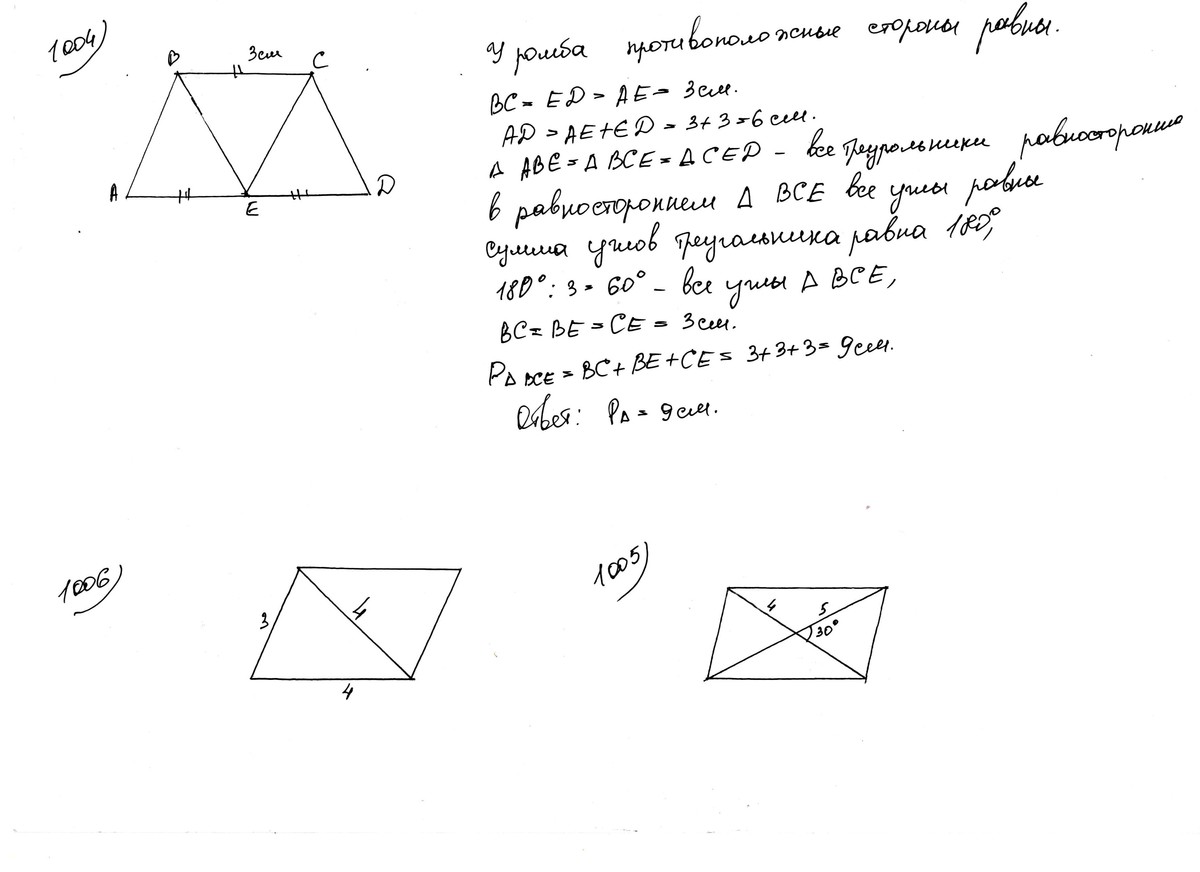 1004)
B 3см C
A E D
У ромба противоположные стороны равны.
BC = ED = AE = 3см.
AD = AE + ED = 3+3=6 см.
Δ ABE = Δ BCE = Δ CED – все треугольники равносторонние
в равностороннем Δ BCE все углы равны
сумма углов треугольника равна 180°,
180° : 3 = 60° – все углы Δ BCE,
BC = BE = CE = 3см.
PΔ BCE = BC + BE + CE = 3+3+3= 9см.
Ответ: PΔ = 9см.
1006)
3 4
4
1005)
4 5
30°